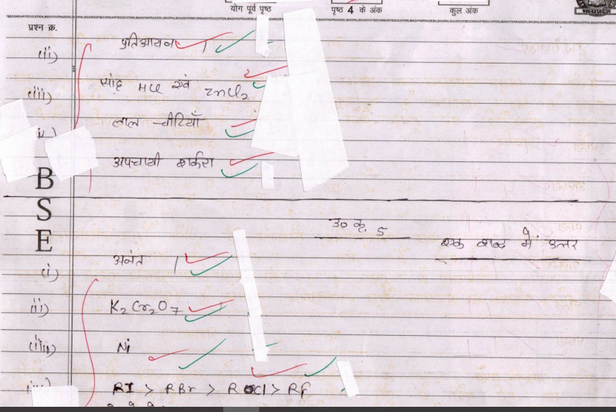 योग पूर्व पृष्ठ
पृष्ठ 4 के अंक
कुल अंक
प्रश्न क्र.
(ii) प्रतिआयन
(iii) सांद्र HCl एवं ZnCl2
लाल चीटियाँ
अपचायी शर्करा
B
S
E
उ० क्र. 5
एक शब्द में उत्तर
(i) अनंत
(ii) K2Cr2O7
(iii) Ni
RI > RBr > RCl > RF